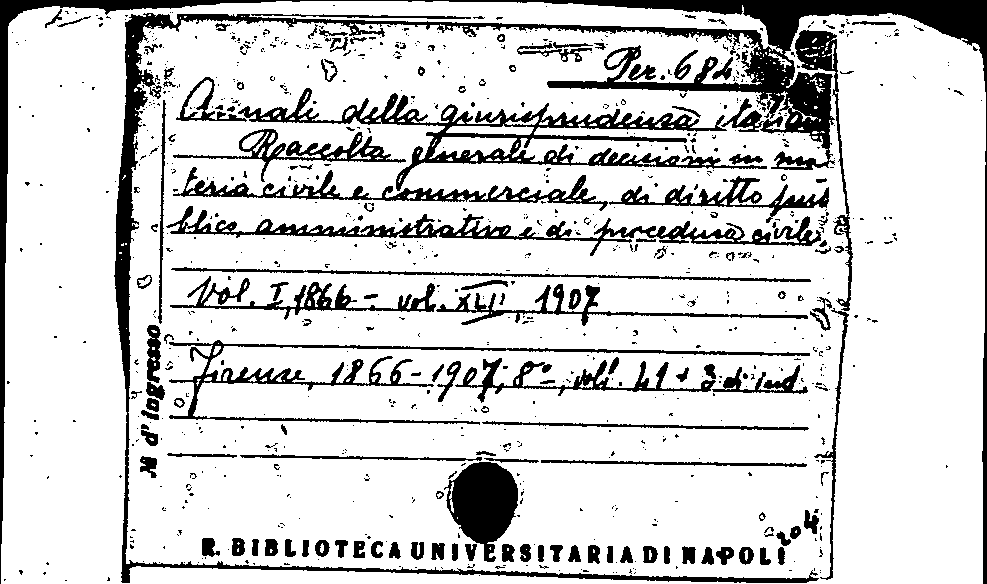 Per. 684
Annali della giurisprudenza italiana
Raccolta generale di decisioni in ma
teria civile e commerciale, di diritto pub
blico, amministrativo e di procedura civile,
Vol. I, 1866 - vol. XLII, 1907
Firenze, 1866-1907, 8°-, voll. 41 + 3 di ind.
N d' ingresso
204
R. BIBLIOTECA UNIVERSITARIA DI NAPOLI